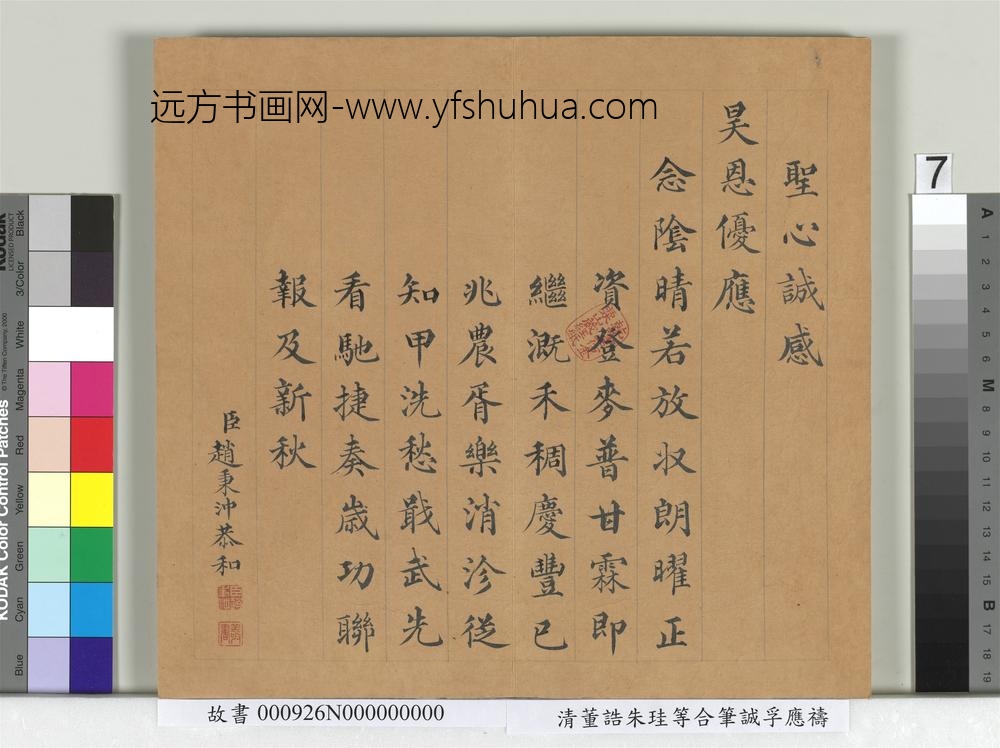 远方书画网-www.yfshuhua.com
聖心誠感
昊恩優應
念陰晴若放收朗曜正
資登麥普甘霖即
繼溉禾稠慶豐已
兆農胥樂消沴從
知甲洗愁戢武先
看馳捷奏歲功聯
報及新秋
臣趙秉沖恭和
故書 000926N000000000
清董誥朱珪等合筆誠孚應禱
7
Kodak
LICENSED PRODUCT
KODAK Color Control Patches
© The Tiffen Company, 2000
Blue
Cyan
Green
Yellow
Red
Magenta
White
3/Color
Black
A
1
2
3
4
5
6
M
8
9
10
11
12
13
14
15
B
17
18
19